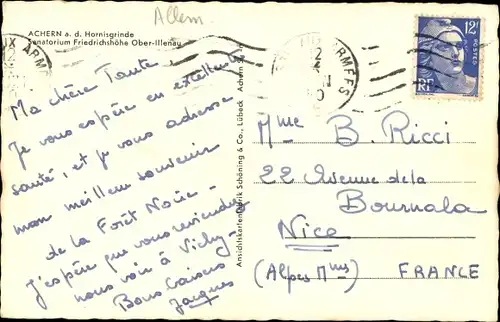 Allem.
ACHERN a. d. Hornisgrinde
Sanatorium Friedrichshöhe Ober-Illenau
Ma chère Tante
Je vous espère en excellente
santé, et je vous adresse
mon meilleur souvenir
de la Forêt Noire.
J'espère que vous reviendrez
nous voir à Vichy.
Bons baisers
Jacques
Ansichtskartenfabrik Schöning & Co., Lübeck
Achern
ARMÉES
12F
POSTES
RF
Mme B. Ricci
22 Avenue de la
Bournala
Nice
(Alpes Mmes) FRANCE